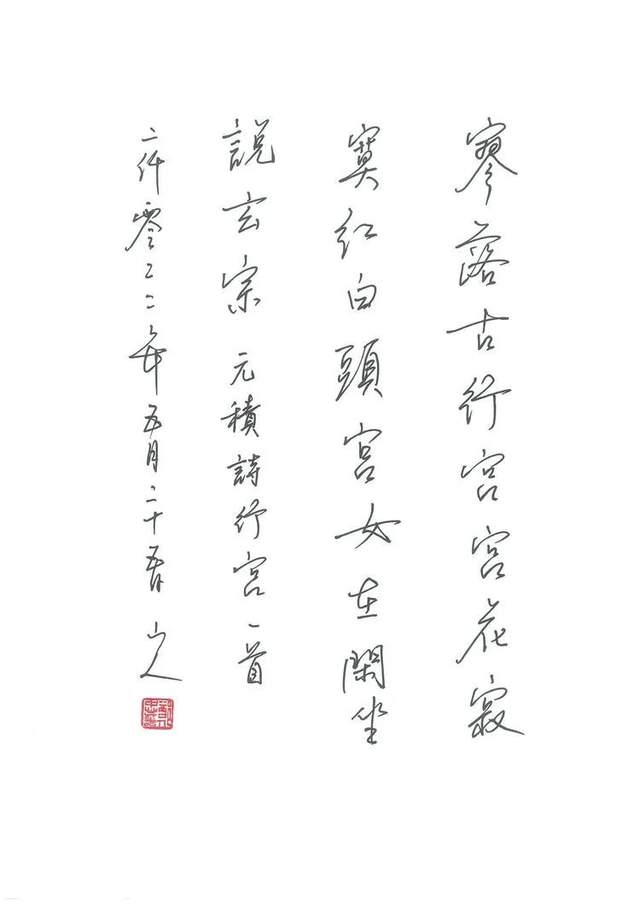 寥落古行宮宮花寂
寞紅白頭宮女在閑坐
說玄宗 元積詩行宮一首
二仟零二二年五月二十五日 山人